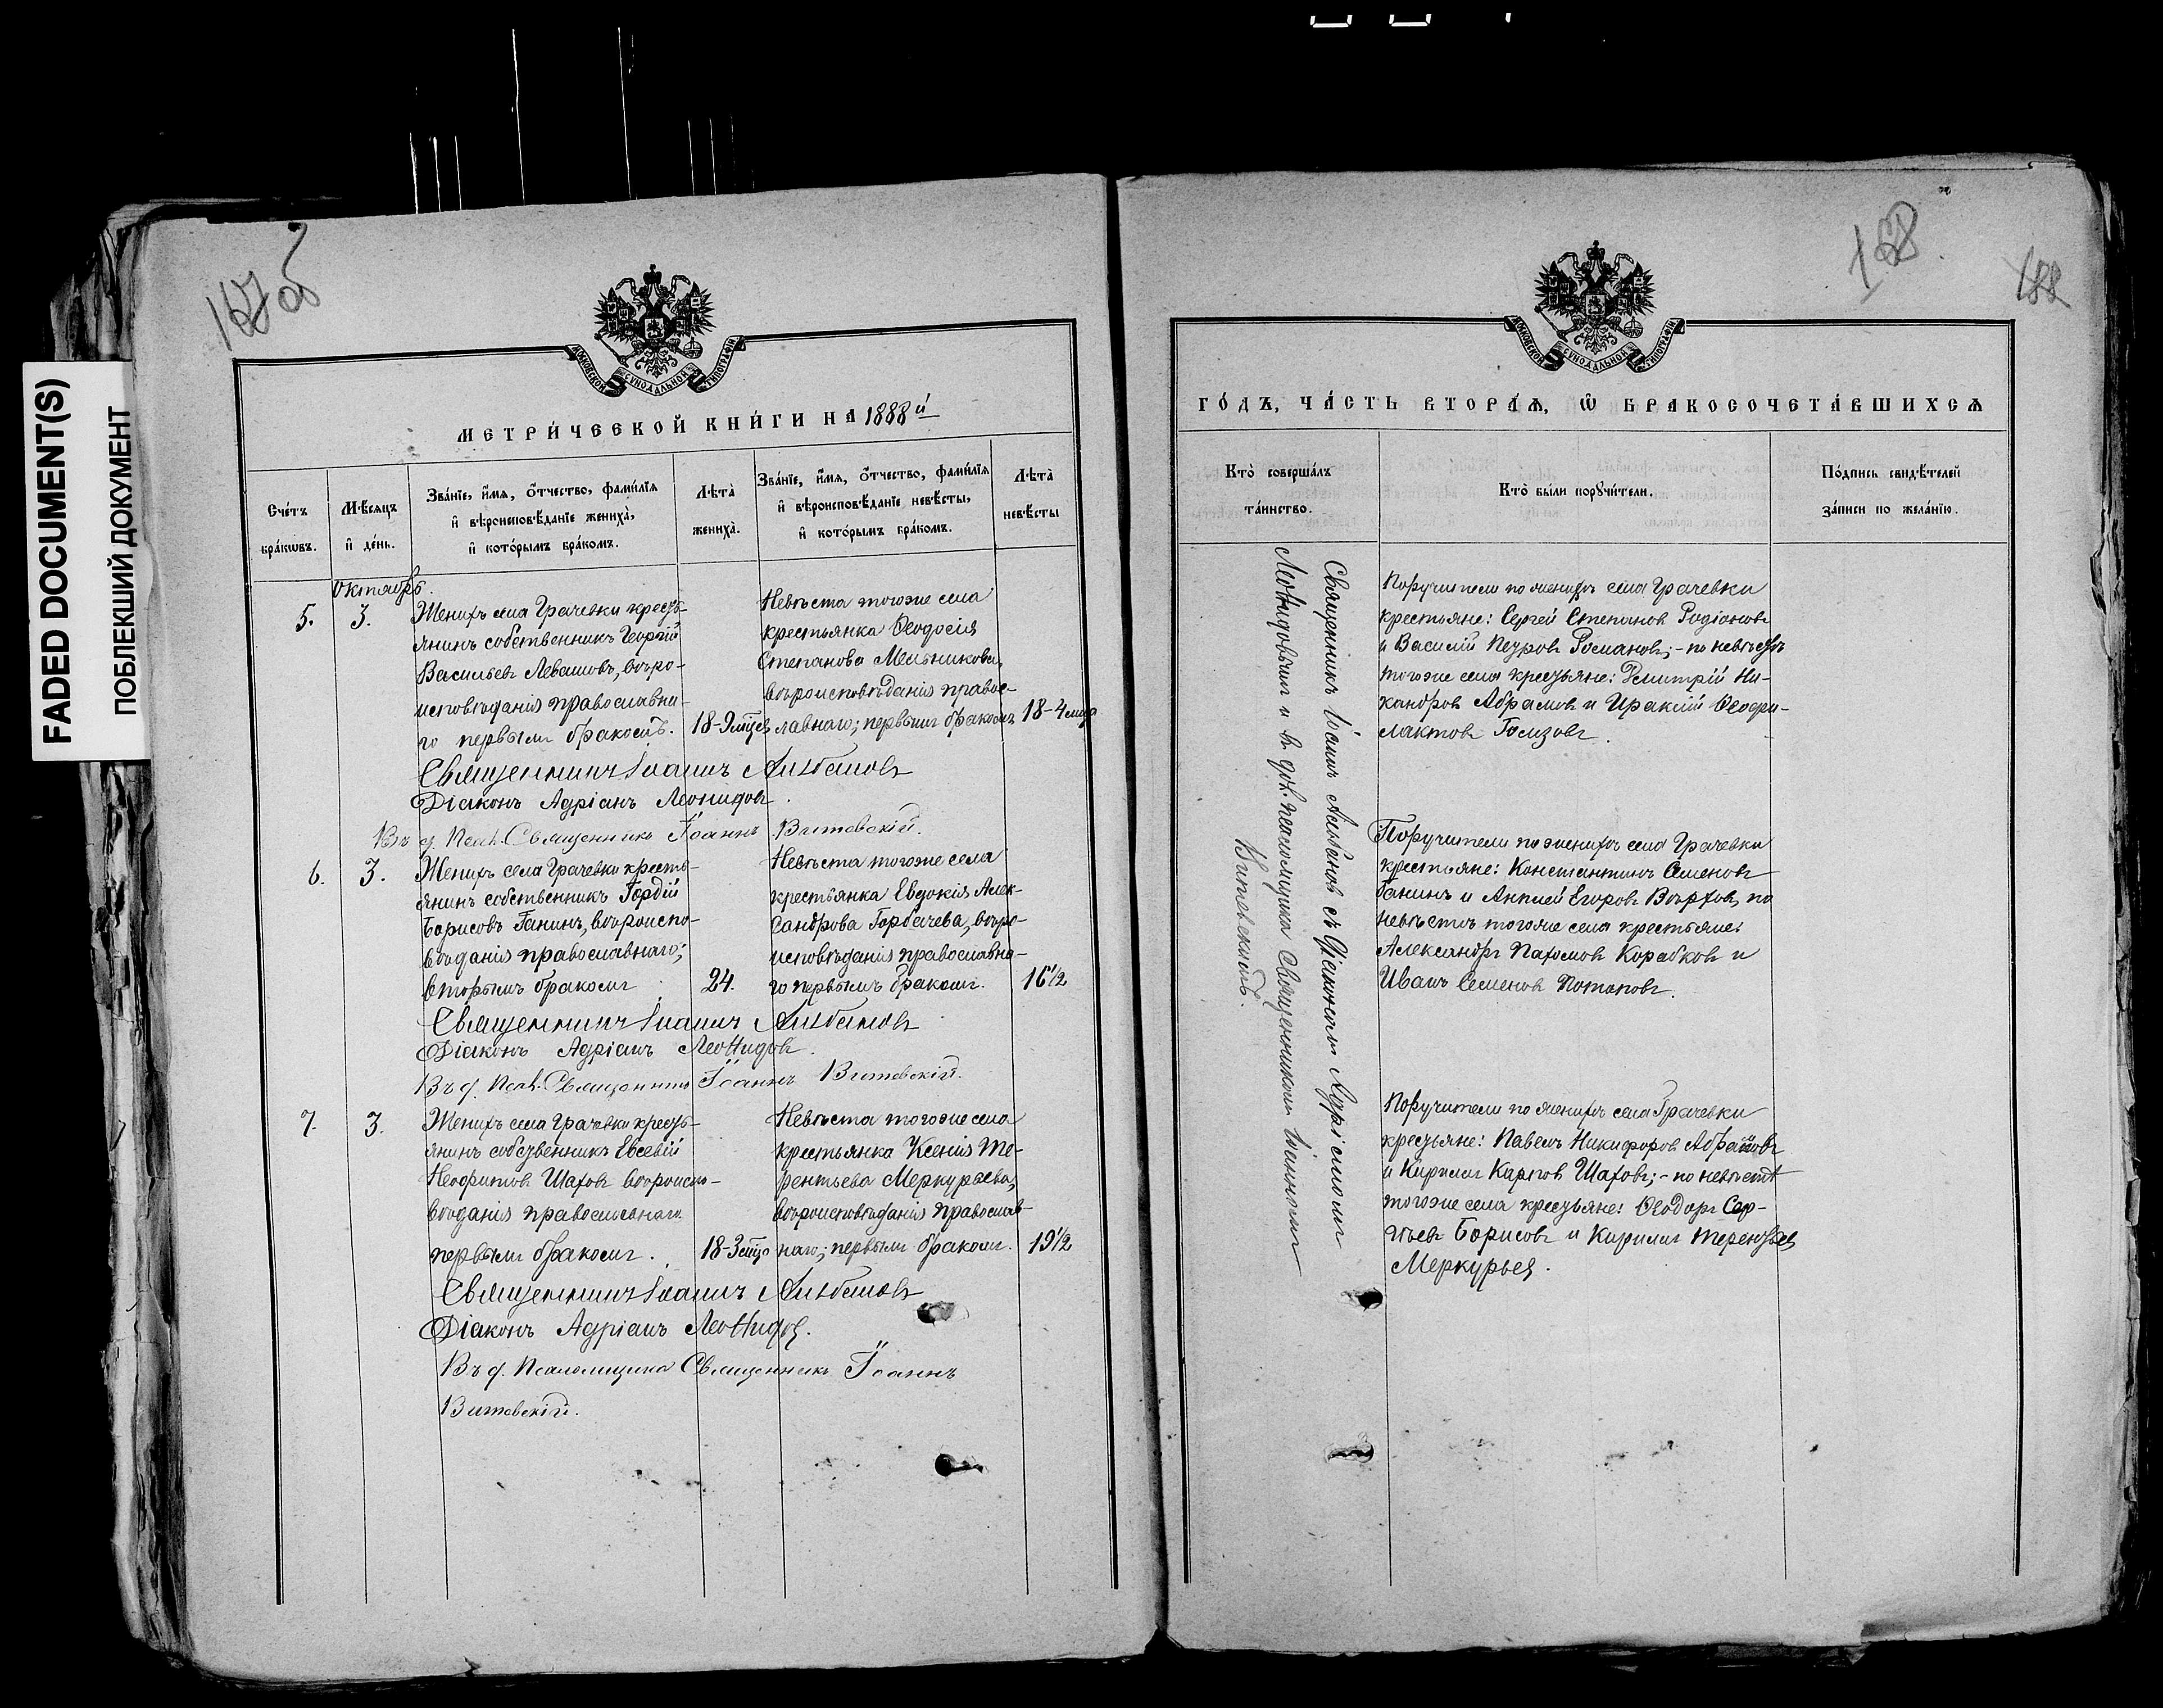 FADED DOCUMENT(S)
ПОБЛЕКШИЙ ДОКУМЕНТ
167 об
МОСКОВСКОЙ СѴНОДАЛЬНОЙ ТИПОГРАФІИ
МЕТРИ́ЧЕСКОЙ КНИ́ГИ НА 1888 й
Сче́тъ бра́кѡвъ.
Мѣ́сѧцъ и҆ де́нь.
Зва́нїе, и҆́мѧ, ѻ҆́тчество, фамѝлїѧ
и҆ вѣроисповѣ́данїе жениха̀,
и҆ кото́рымъ бра́комъ.
Лѣта̀ жениха̀.
Зва́нїе, и҆́мѧ, ѻ҆́тчество, фамѝлїѧ
и҆ вѣроисповѣ́данїе невѣ́сты,
и҆ кото́рымъ бра́комъ.
Лѣта̀ невѣ́сты
Октябрь.
5. 3.
Женихъ села Грачевки кресть-
янинъ собственникъ Георгій
Васильевъ Левашовъ, вѣро-
исповѣданія православна-
го первымъ бракомъ.
18-9 мцев
Невѣста тогоже села
крестьянка Ѳеодосія
Степанова Мельникова,
вѣроисповѣданія правос-
лавнаго; первымъ бракомъ
18-4 мца
Священникъ Іоаннъ Альбановъ
Діаконъ Адріанъ Леонидовъ.
Въ д. Псал. Священникъ Іоаннъ Витевскій.
6. 3.
Женихъ села Грачевки кресть-
янинъ собственникъ Гордій
Борисовъ Ганинъ, вѣроиспо-
вѣданія православнаго;
вторымъ бракомъ
24.
Невѣста тогоже села
крестьянка Евдокія Алек-
сандрова Горбачева, вѣро-
исповѣданія православна-
го первымъ бракомъ.
16 1/2
Священникъ Іоаннъ Альбановъ
Діаконъ Адріанъ Леонидовъ.
Въ д. Псал. Священникъ Іоаннъ Витевскій.
7. 3.
Женихъ села Грачевки кресть-
янинъ собственникъ Евсевій
Неофитовъ Шаховъ вѣроиспо-
вѣданія православнаго
первымъ бракомъ.
18-3 мца
Невѣста тогоже села
крестьянка Ксенія Те-
рентьева Меркурьева,
вѣроисповѣданія православ-
наго; первымъ бракомъ.
19 1/2
Священникъ Іоаннъ Альбановъ
Діаконъ Адріанъ Леонидовъ.
Въ д. Псаломщика Священникъ Іоаннъ
Витевскій.
168
188
МОСКОВСКОЙ СѴНОДАЛЬНОЙ ТИПОГРАФІИ
ГО́ДЪ, ЧА́СТЬ ВТОРА́Ѧ, Ѡ҆ БРАКОСОЧЕТА́ВШИХСѦ
Кто̀ соверша́лъ
та́инство.
Кто̀ бы́ли порꙋчи́тели.
По́дпись свидѣ́телей
за́писи по жела́нїю.
Священникъ Іоаннъ Альбановъ съ Діакономъ Адріаномъ
Леонидовымъ и въ дол. псаломщика Священникомъ Іоанномъ
Витевскимъ.
Поручители по женихѣ села Грачевки
крестьяне: Сергей Степановъ Родіоновъ
и Василій Петровъ Романовъ; - по невѣстѣ
тогоже села крестьяне: Димитрій Ни-
кандровъ Абрамовъ и Ираклій Ѳеофи-
лактовъ Гомзовъ.
Поручители по женихѣ села Грачевки
крестьяне: Константинъ Семеновъ
Ганинъ и Егоровъ по
невѣстѣ тогоже села крестьяне:
Александръ Пахомовъ Коробковъ и
Иванъ Семеновъ Потаповъ.
Поручители по женихѣ села Грачевки
крестьяне: Павелъ Никифоровъ Абрамовъ
и Кириллъ Карповъ Шаховъ; - по невѣстѣ
тогоже села крестьяне: Ѳеодоръ Сер-
гѣевъ Борисовъ и Кириллъ Терентьев
Меркурьев.